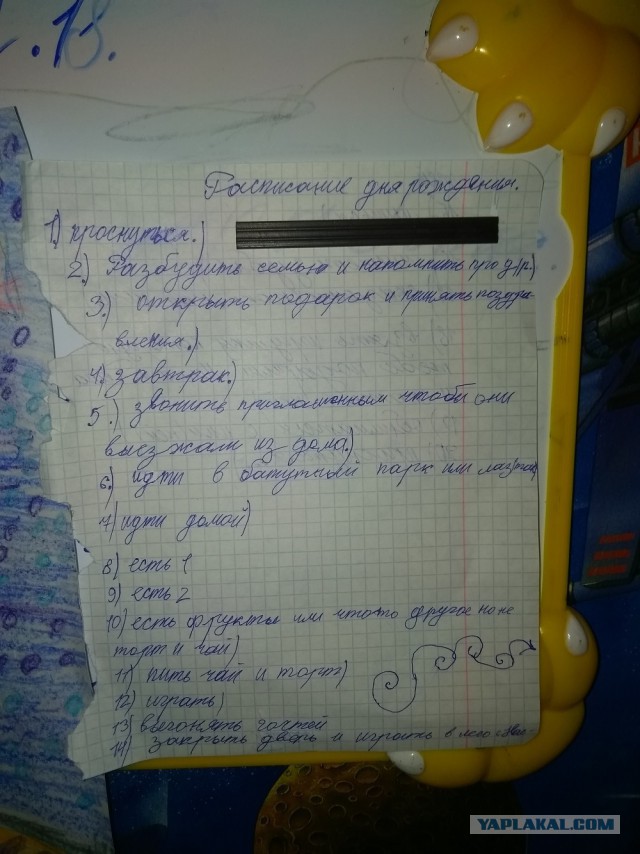 .18.
Расписание дня рождения.
1) проснуться.)
2.) Разбудить семью и напомнить про д(р.)
3.) открыть подарок и принять поздра-
вления.)
4.) завтрак.)
5.) звонить приглашонным чтоби они
выезжали из дома.)
6.) идти в батутный парк или лаз(таг)
7) идти домой)
8) есть 1
9) есть 2
10) есть фрукты или что-то другое но не
торт и чай)
11) пить чай и торт)
12) играть)
13) выгонять гостей
14) закрыть дверь и играть в лего
YAPLAKAL.COM